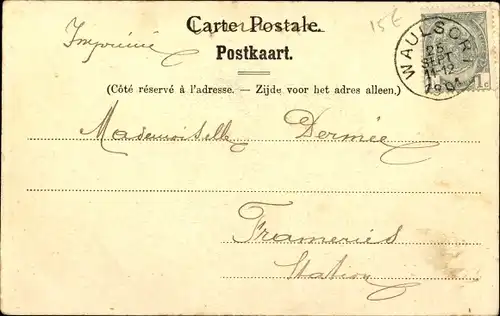 Carte Postale.
15 €
Imprimé
Postkaart.
(Côté réservé à l'adresse. — Zijde voor het adres alleen.)
WAULSORT
25
SEPT
11-12
1901
1c
Mademoiselle Dermée
Frameries
Station